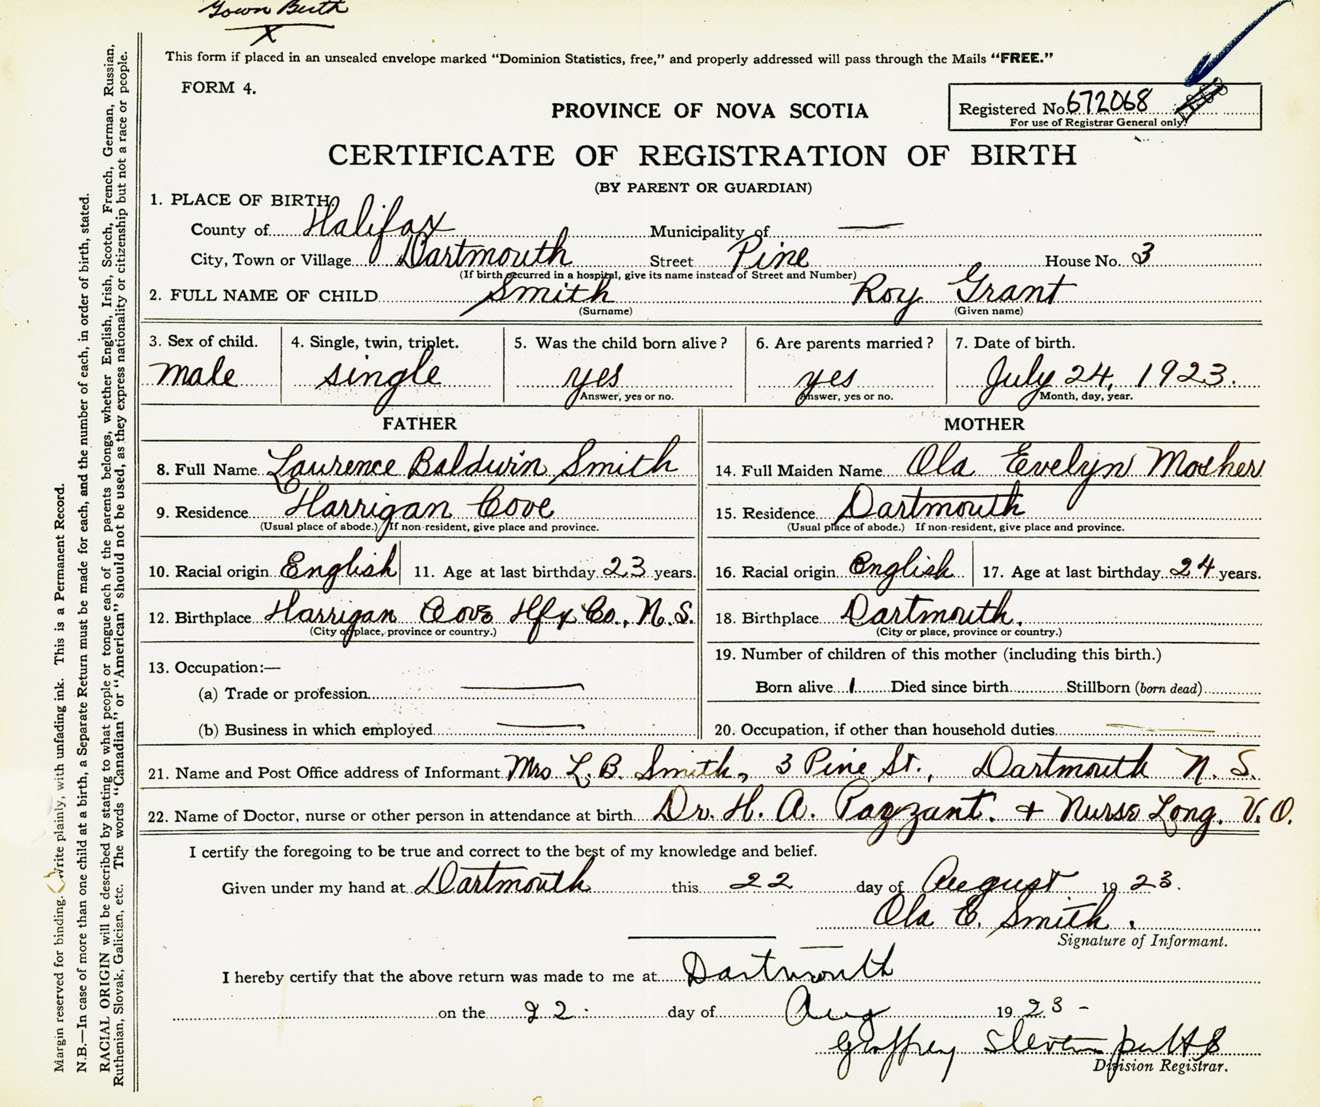 Town Birth
X
This form if placed in an unsealed envelope marked "Dominion Statistics, free," and properly addressed will pass through the Mails "FREE."
FORM 4.
PROVINCE OF NOVA SCOTIA
Registered No. 672068
For use of Registrar General only.
CERTIFICATE OF REGISTRATION OF BIRTH
(BY PARENT OR GUARDIAN)
1. PLACE OF BIRTH
County of Halifax Municipality of —
City, Town or Village Dartmouth Street Pine House No. 3
(If birth occurred in a hospital, give its name instead of Street and Number)
2. FULL NAME OF CHILD Smith Roy Grant
(Surname) (Given name)
3. Sex of child. 4. Single, twin, triplet. 5. Was the child born alive? 6. Are parents married? 7. Date of birth.
male single yes yes July 24, 1923.
Answer, yes or no. Answer, yes or no. Month, day, year.
FATHER MOTHER
8. Full Name Laurence Baldwin Smith 14. Full Maiden Name Ola Evelyn Mosher
9. Residence Harrigan Cove 15. Residence Dartmouth
(Usual place of abode.) If non-resident, give place and province. (Usual place of abode.) If non-resident, give place and province.
10. Racial origin English 11. Age at last birthday 23 years. 16. Racial origin English 17. Age at last birthday 24 years.
12. Birthplace Harrigan Cove Hfx Co., N.S. 18. Birthplace Dartmouth.
(City or place, province or country.) (City or place, province or country.)
13. Occupation:— 19. Number of children of this mother (including this birth.)
(a) Trade or profession — Born alive 1 Died since birth Stillborn (born dead)
(b) Business in which employed — 20. Occupation, if other than household duties —
21. Name and Post Office address of Informant Mrs L. B. Smith, 3 Pine St., Dartmouth N. S.
22. Name of Doctor, nurse or other person in attendance at birth Dr. H. A. Payzant. + Nurse Long. V. O.
I certify the foregoing to be true and correct to the best of my knowledge and belief.
Given under my hand at Dartmouth this 22 day of August 1923.
Ola E. Smith.
Signature of Informant.
I hereby certify that the above return was made to me at Dartmouth
on the 22. day of Aug 1923 -
Geoffrey
Division Registrar.
Margin reserved for binding. Write plainly, with unfading ink. This is a Permanent Record.
N.B.—In case of more than one child at a birth, a Separate Return must be made for each, and the number of each, in order of birth, stated.
RACIAL ORIGIN will be described by stating to what people or tongue each of the parents belongs, whether English, Irish, Scotch, French, German, Russian,
Ruthenian, Slovak, Galician, etc. The words "Canadian" or "American" should not be used, as they express nationality or citizenship but not a race or people.